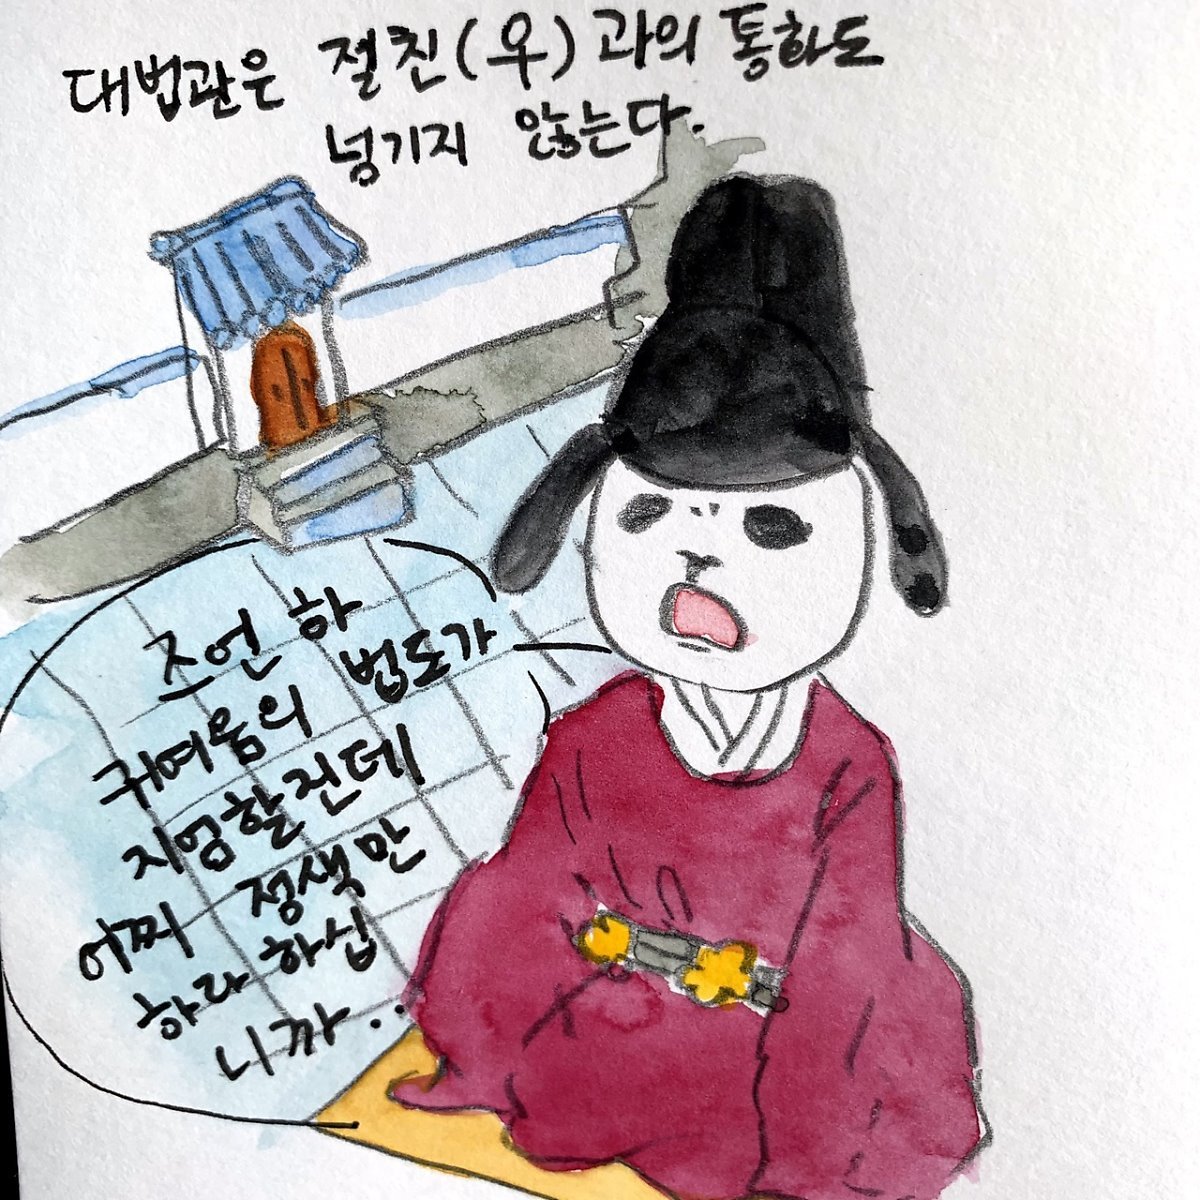 대법관은 절친(우)과의 통화도
넝기지 않는다.
즈언 하
귀여움의 법도가
지엄할진데
어찌 정색만
하라하십
니까..